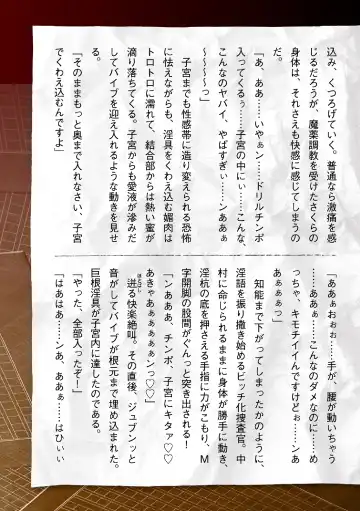 込み、くつろげていく。普通なら激痛を感
じるだろうが、魔薬調教を受けたさくらの
身体は、それさえも快感に感じてしまうの
だ。
「あ、ああ……いやぁン……ドリルチンポ
入ってくるぅ……子宮の中にぃ……こんな、
こんなのヤバイ、やばすぎぃ……ンああぁ
～～～～っ」
　子宮までも性感帯に造り変えられる恐怖
に怯えながらも、淫具をくわえ込む媚肉は
トロトロに濡れて、結合部からは熱い蜜が
滴り落ちてくる。子宮からも愛液が滲みだ
してバイブを迎え入れるような動きを見せ
る。
「そのままもっと奥まで入れなさい、子宮
でくわえ込むんですよ」
「ああぁおぉぉ……手が、腰が動いちゃう
……ああぁ……こんなのダメなのに……め
っちゃ、キモチイイんですけどぉ……ンあ
あぁぁぁっ」
　知能まで下がってしまったかのように、
淫語を振り撒き始めるビッチ化捜査官。中
村に命じられるままに身体が勝手に動き、
淫杭の底を押さえる手指に力がこもり、Ｍ
字開脚の股間がぐんっと突き出される！
「ンあああ、チンポ、子宮にキタァ♡♡
あきゃあぁぁぁぁぁンっ♡♡」
　迸る快楽絶叫。その直後、ジュブンッと
音がしてバイブが根元まで埋め込まれた。
巨根淫具が子宮内に達したのである。
「やった、全部入ったぞ！」
「はあはあ……ンあ、ああぁ……はひぃぃ